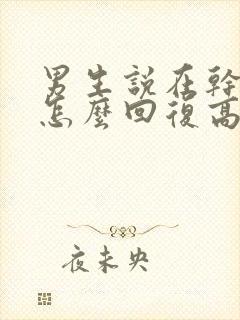 男生說在幹
怎麼回復高
夜未央